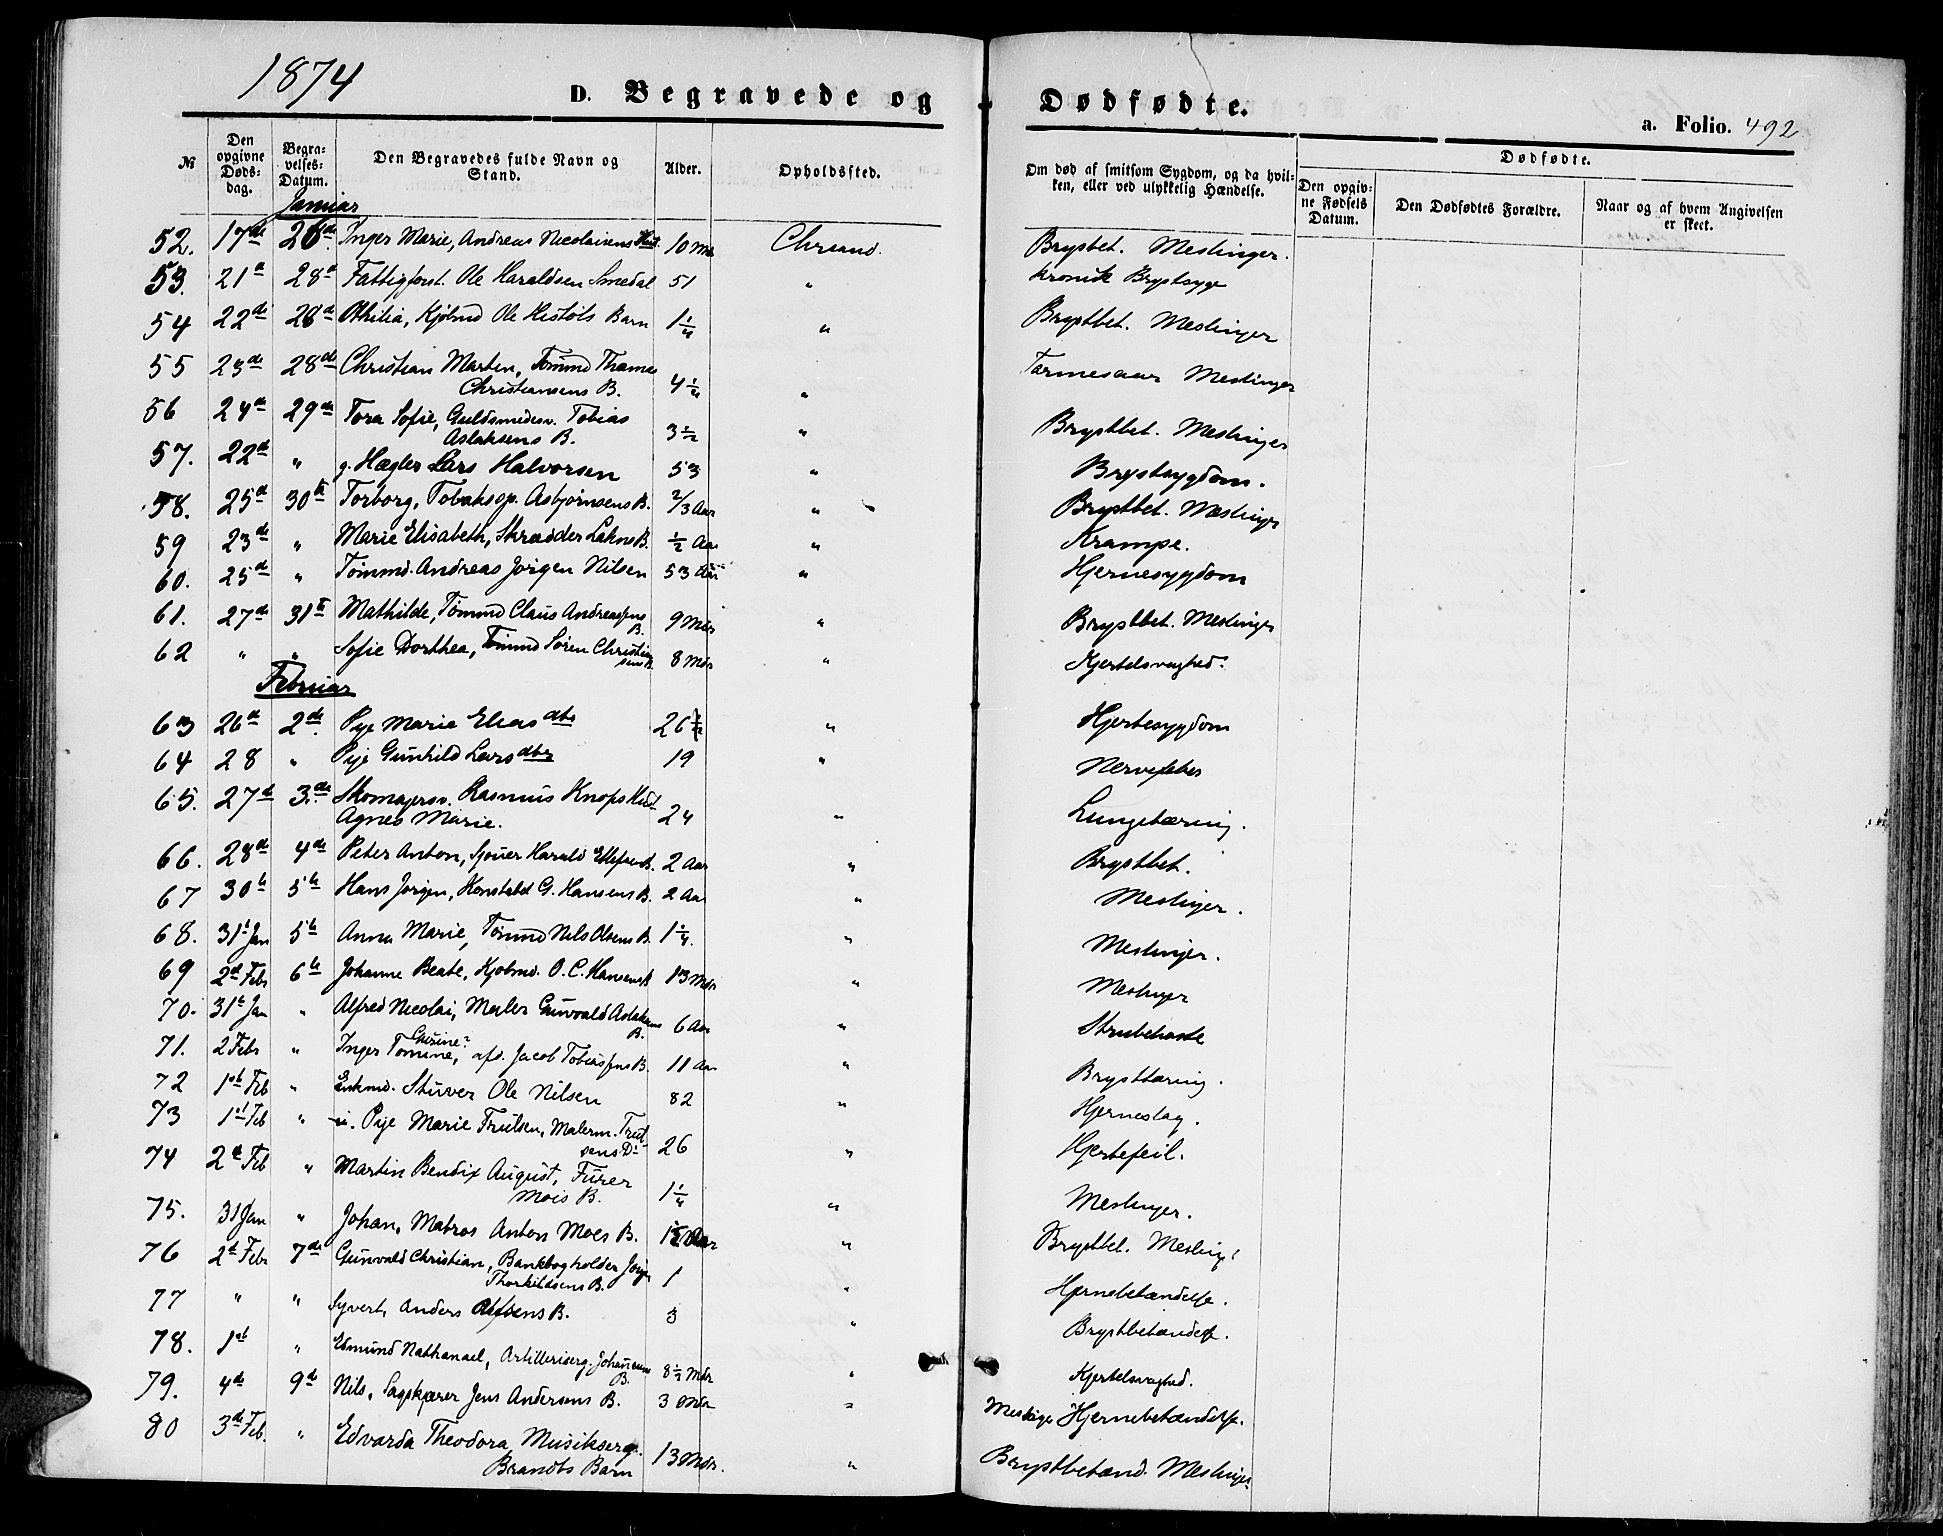 1874
D. Begravede og Dødfødte.
a. Folio. 492
№ Den opgivne Døds-dag. Begra-velses-Datum. Den Begravedes fulde Navn og Stand. Alder. Opholdssted. Om død af smitsom Sygdom, og da hvil-ken, eller ved ulykkelig Hændelse. Dødfødte. Den opgiv-ne Fødsels Datum. Den Dødfødtes Forældre. Naar og af hvem Angivelsen er skeet.
Januar
52. 17de 26de Inger Marie, Andreas Nicolaisens 10 Mdr Chrsand. Brystbet. Meslinger.
53. 21de 28de Fattigforst. Ole Haraldsen Smedal 51 " kronik Brystsyge
54 22de 28de Othilia, Kjøbmd Ole Hestöls Barn 1 1/4 " Brystbet. Meslinger
55 23de 28de Christian Marten, Tømmd Thomas
Christiansens B. 4 1/4 " Tarmesaar Meslinger
56 24de 29de Tora Sofie, Guldsmedesv. Tobias
Aslaksens B. 3 1/2 " Brystbet. Meslinger
57. 22de " g. Hægler Lars Halvorsen 53 " Brystsygdom.
58. 25de 30te Torborg, Tobaksp. Asbjørnsens B. 2/3 Aar " Brystbet. Meslinger
59 23de " Marie Elisabeth, Skrædder Lahns B. 1/2 Aar " Krampe.
60. 25de " Tømmd. Andreas Jörgen Nilsen 53 Aar " Hjernesygdom
61. 27de 31te Mathilde, Tømmd Claus Andreassens
B. 9 Mdr " Brystbet. Meslinger
62 " " Sofie Dorthea, Tømmd Søren Christian
sens B. 8 Mdr " Kjertelsvaghed.
Februar
63 26de 2de. Pige Marie Eliasdtr 26 1/2 " Hjertesygdom
64 28 " Pige Gunhild Larsdtr 19 " Nervefeber
65. 27de 3de. Skomagersv. Rasmus Knops Hust
Agnes Marie. 24 " Lungetæring.
66. 28de 4de Peter Anton, Sjouer Harald Ellefsens B. 2 Aar " Brystbet.
67 30te 5te Hans Jørgen, Konstabel G. Hansens B. 2 Aar " Meslinger.
68. 31te Jan 5te Anna Marie, Tømmd Nils Olsens B. 1 1/4. " Meslinger.
69 2de Feb 6te Johanne Beate, Kjøbmd. O. C. Hansens B 13 Mdr " Meslinger
70. 31te Jan " Alfred Nicolai, Maler Gunvald Aslaksens
B. 6 Aar " Strubehoste
71. 2 Febr " Inger Tomine, afd. Jacob Tobiassens B. 11 Aar " Brysttæring.
72 1ste Feb " Enkmd. Stuver Ole Nilsen 82 " Hjerneslag.
73 1ste Feb " u. Pige Marie Trulsen, Malerm. Trul
sens D. 26 " Hjertefeil.
74 2de Feb " Martin Bendix August, Fürer
Mois B. 1 1/4 " Meslinger.
75. 31 Jan " Johan, Matros Anton Moes B. " Brystbet. Mesling
76 2de Febr 7de Gunvald Christian, Bankbogholder Jørgen
Thorkildsens B. 1 " Hjernebetændelse.
77 " " Syvert, Anders Olsens B. 3 " Brystbetændelse.
78. 1ste " Edmund Nathanael, Artillerierg. Johansens
B. 8 1/2 Mdr " Kjertelsvaghed.
79. 4de 9de Nils, Sagskjærer Jens Andersens B. 3 Mdr " Meslinger Hjernebetændelse.
80 3de Feb. " Edvarda Theodora, Musikserg.
Brandts Barn 13 Mdr. " Brystbetænd. Meslinger